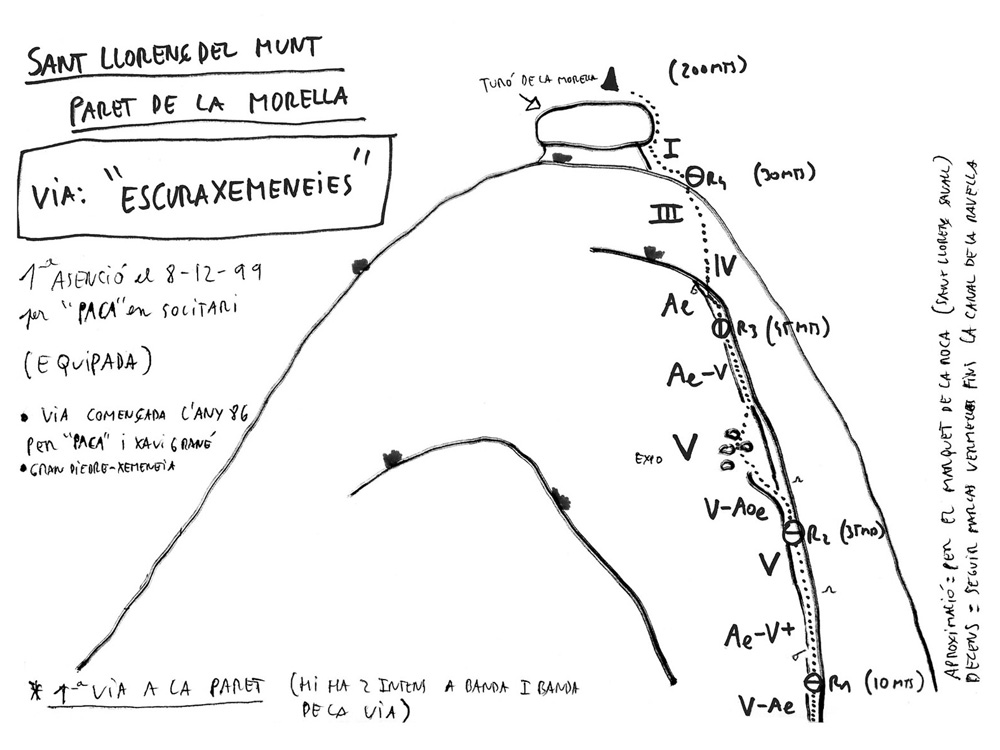 SANT LLORENÇ DEL MUNT
PARET DE LA MORELLA
VIA: "ESCURAXEMENEIES"
1ª ASENCIÓ el 8-12-99
per "PACA" en SOLITARI
(EQUIPADA)
• VIA COMENÇADA L'ANY 86
PER "PACA" i XAVI GRANÉ
• GRAN DIEDRE-XEMENEIA
TURÓ DE LA MORELLA
(200 MTS)
I
R4 (30 MTS)
III
IV
Ae
R3 (45 MTS)
Ae-V
EXPO V
V-Aoe
R2 (35 MTS)
V
Ae-V+
R1 (10 MTS)
V-Ae
* 1ª VIA A LA PARET (HI HA 2 INTENS A BANDA I BANDA
DE LA VIA)
APROXIMACIÓ = PER EL MARQUET DE LA ROCA (SANT LLORENS SAVALL)
DECENS = SEGUIR MARCAS VERMELLES FINS LA CANAL DE LA NAVELLA